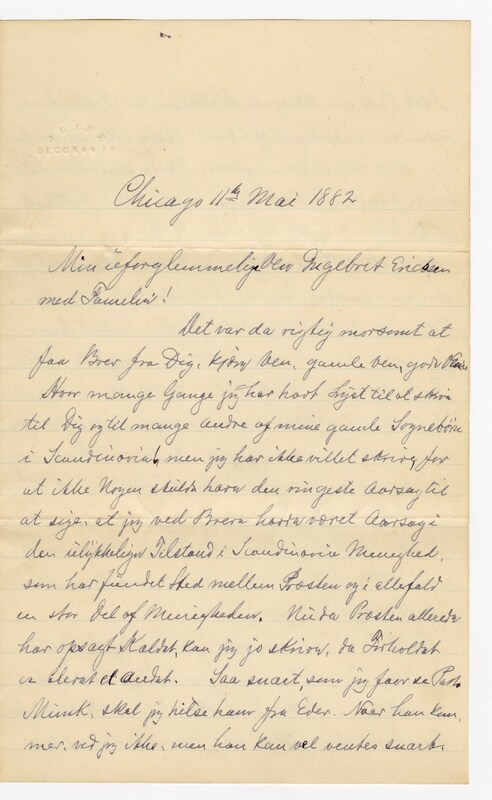 DECORAH IA
Chicago 11th Mai 1882
Min uforglemmelige Ven Ingebret Ericksen
med Familie!
Det var da rigtig morsomt at
faa Brev fra Dig, kjære Ven, gamle ven, gode Ven
Hvor mange Gange jeg har havt Lyst til at skrive
til Dig og til mange andre af mine gamle Sognebørn
i Scandinavia, men jeg har ikke villet skrive, for
at ikke Nogen skulde have den ringeste Aarsag til
at sige, at jeg ved Breve havde været Aarsag i
den ulykkelige Tilstand i Scandinavia Menighed,
som har fundet Sted mellem Præsten og i allefald
en stor Del af Menigheden. Nu da Præsten allerede
har opsagt Kaldet, kan jeg jo skrive, da Forholdet
er blevet et andet. Saa snart, som jeg faar se Past.
Munk, skal jeg hilse ham fra Eder. Naar han kom-
mer, ved jeg ikke, men han kan vel ventes snart.